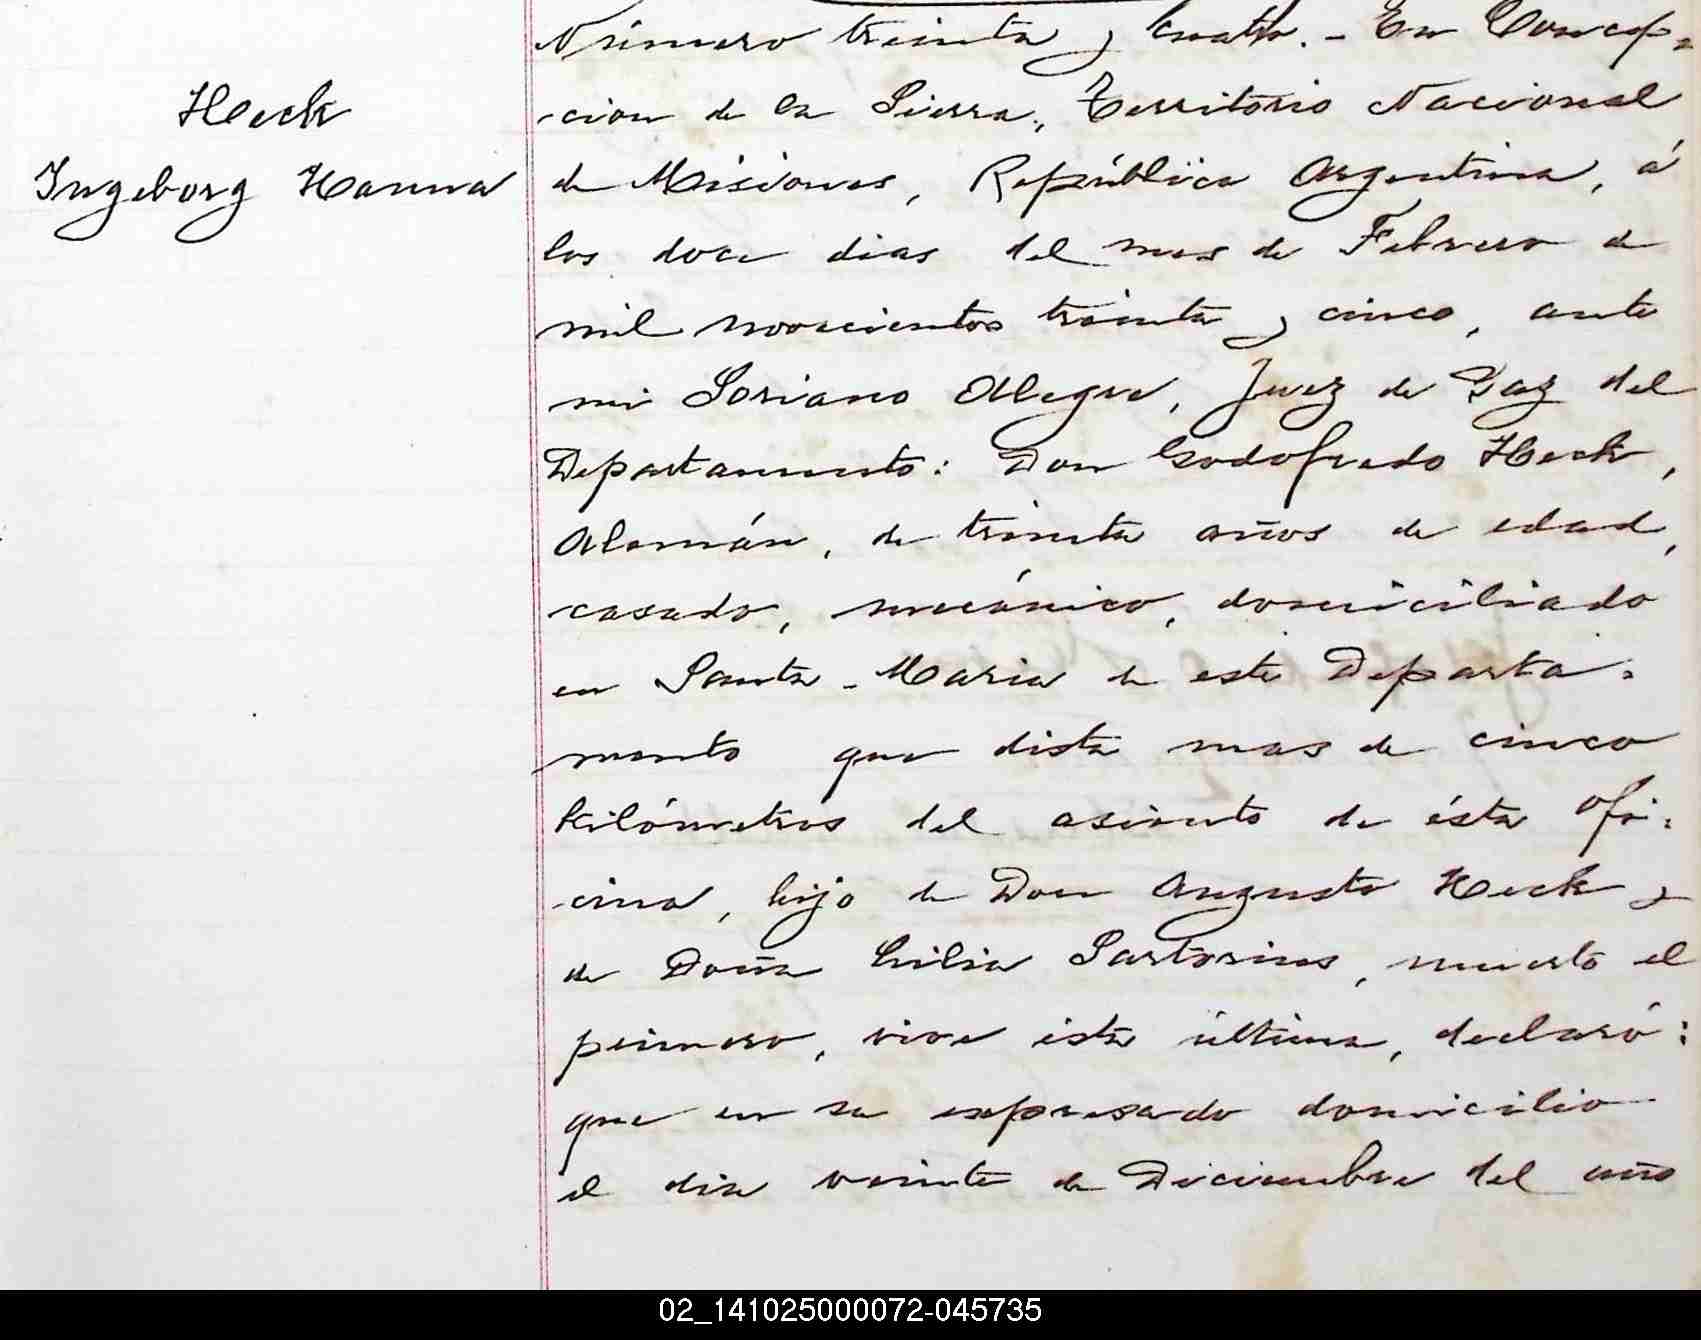 Heck
Ingeborg Hanna
Número treinta y cuatro. - En Concep-
cion de la Sierra, Territorio Nacional
de Misiones, República Argentina, á
los doce dias del mes de Febrero de
mil novecientos treinta y cinco, ante
mi Soriano Alegre, Juez de Paz del
Departamento: Don Godofredo Heck,
Alemán, de treinta años de edad,
casado, mecánico, domiciliado
en Santa-Maria de este Departa-
mento que dista mas de cinco
kilómetros del asiento de ésta Ofi-
cina, hijo de Don Augusto Heck y
de Doña Lilia Sartorius, muerto el
primero, vive ésta última, declaró:
que en su expresado domicilio
el dia veinte de Diciembre del año
02_141025000072-045735